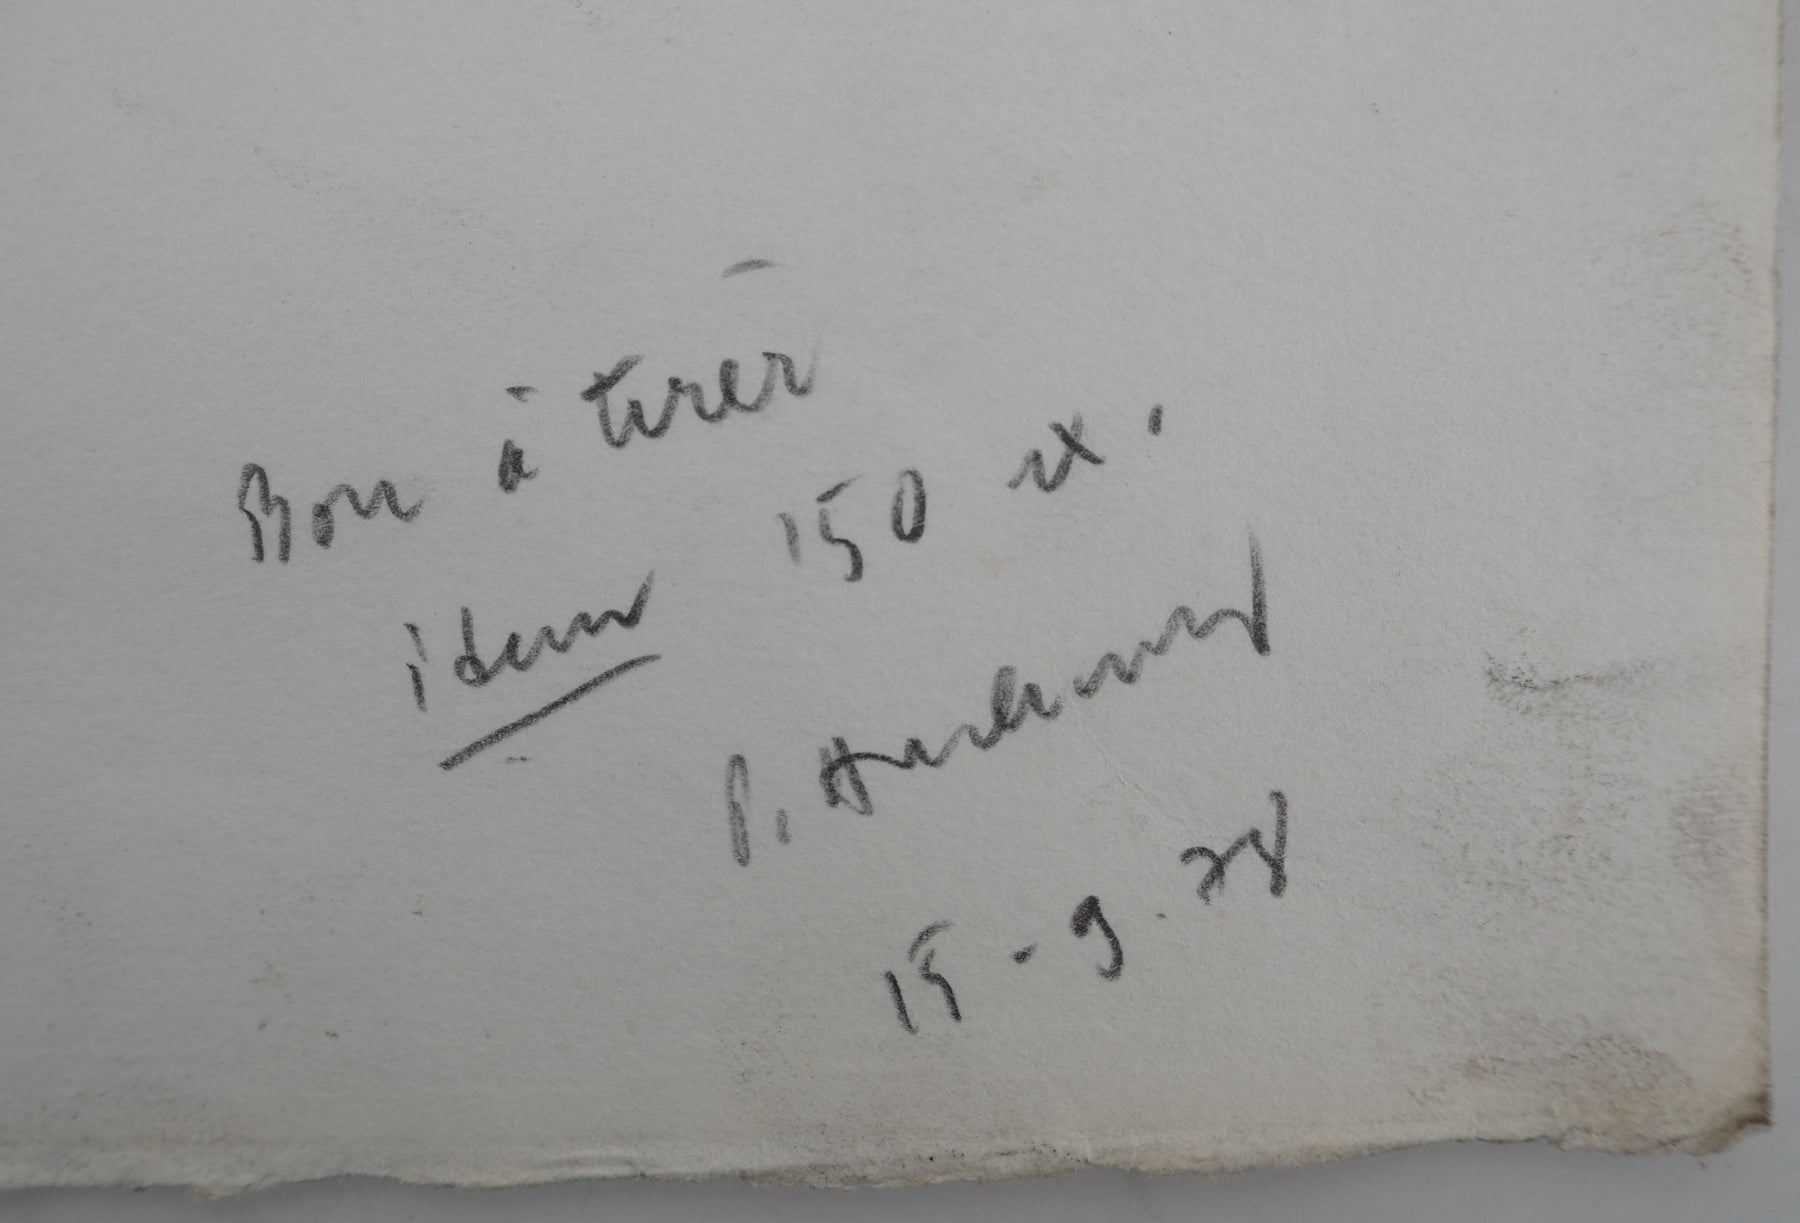 Bon à tirer
idem 150 ex.
P.
15-9.78